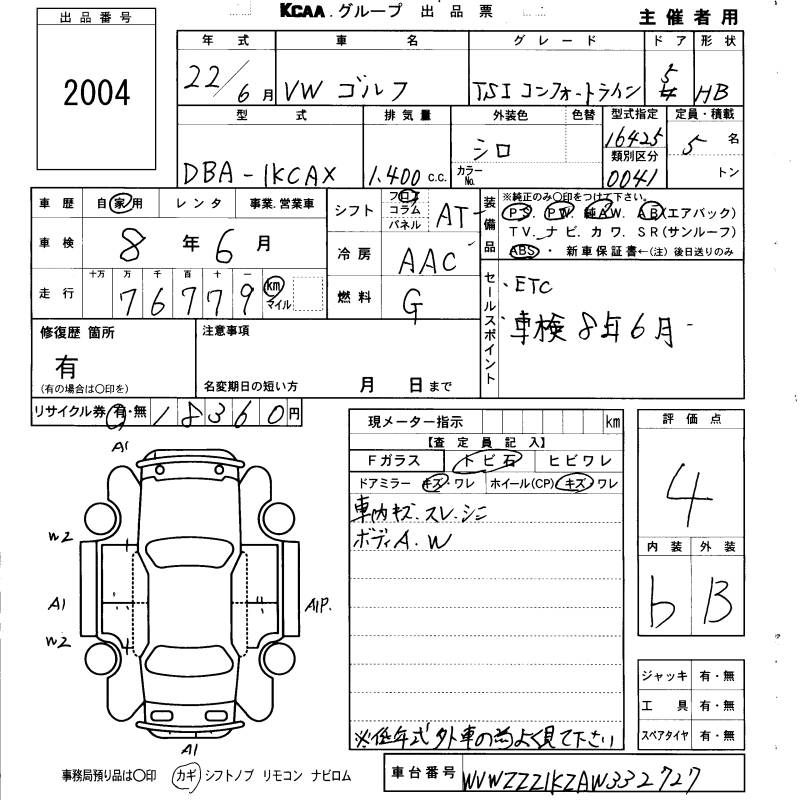 KCAA.グループ 出品票
主催者用
出品番号
2004
年式 車名 グレード ドア 形状
22/6月 VW ゴルフ TSI コンフォートライン 5 4 HB
型式 排気量 外装色 色替 型式指定 定員・積載
DBA-1KCAX 1.400 c.c. シロ カラーNo. 16425 5名
類別区分
0041 トン
車歴 自家用 レンタ 事業.営業車
車検 8年6月
走行 十万 万 千 百 十 一
76779 km マイル
シフト フロア コラム パネル AT
冷房 AAC
燃料 G
装備品
※純正のみ○印をつけて下さい。
PS. PW. 純AW. AB(エアバック)
TV. ナビ. カワ. SR(サンルーフ)
ABS・ 新車保証書←(注)後日送りのみ
セールスポイント
・ETC
車検 8年6月
修復歴 箇所
有
(有の場合は○印を)
注意事項
名変期日の短い方 月 日まで
リサイクル券 有・無 18360円
現メーター指示 km
【査定員記入】
Fガラス トビ石 ヒビワレ
ドアミラー キズ・ワレ ホイール(CP) キズ・ワレ
車内キズ.スレ.シミ
ボディA.W
※低年式外車の為よく見て下さい
評価点
4
内装 外装
b B
A1
W2
A1
A1P.
W2
A1
ジャッキ 有・無
工具 有・無
スペアタイヤ 有・無
事務局預り品は○印 カギ シフトノブ リモコン ナビロム
車台番号 WVWZZZ1KZAW332727